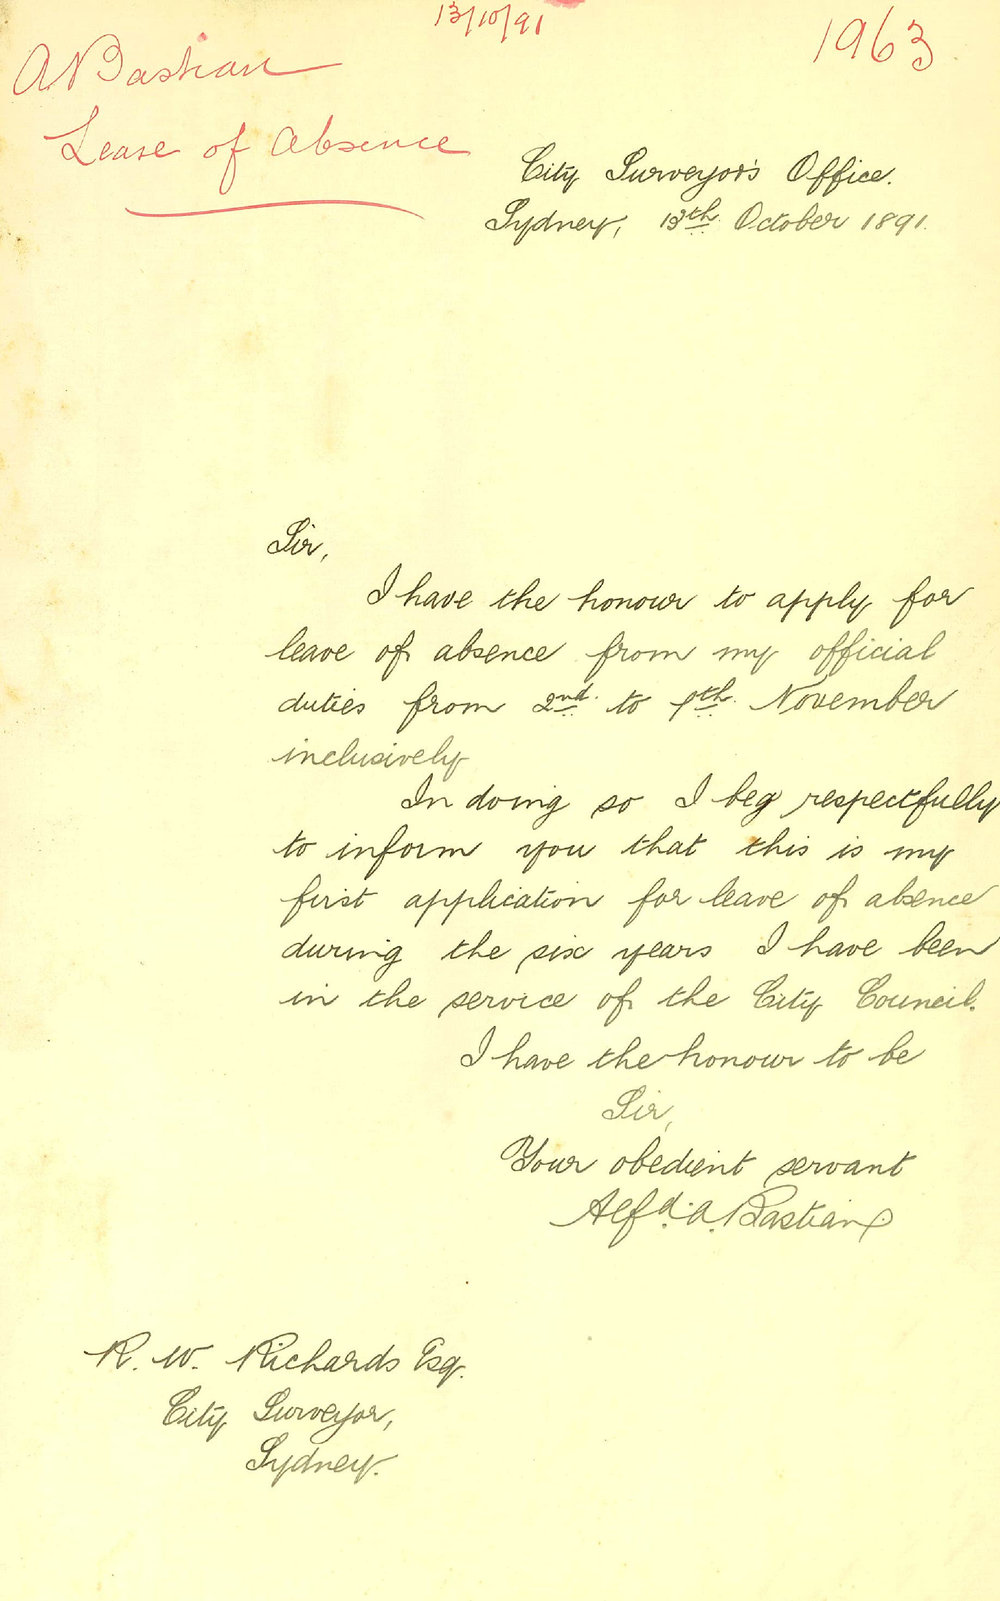 13/10/91
1963
A Bastian
Leave of Absence
City Surveyor's Office.
Sydney, 13th October 1891.
Sir,
I have the honour to apply for
leave of absence from my official
duties from 2nd. to 9th. November
inclusively
In doing so I beg respectfully
to inform you that this is my
first application for leave of absence
during the six years I have been
in the service of the City Council.
I have the honour to be
Sir,
Your obedient servant
Alfd. A. Bastian
R. W. Richards Esq.
City Surveyor,
Sydney.